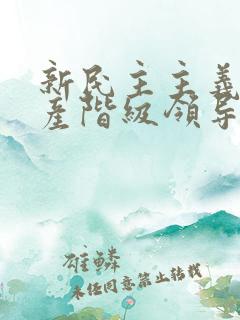 新民主主義
產階級領导
雄鱗
未任同意禁止转载